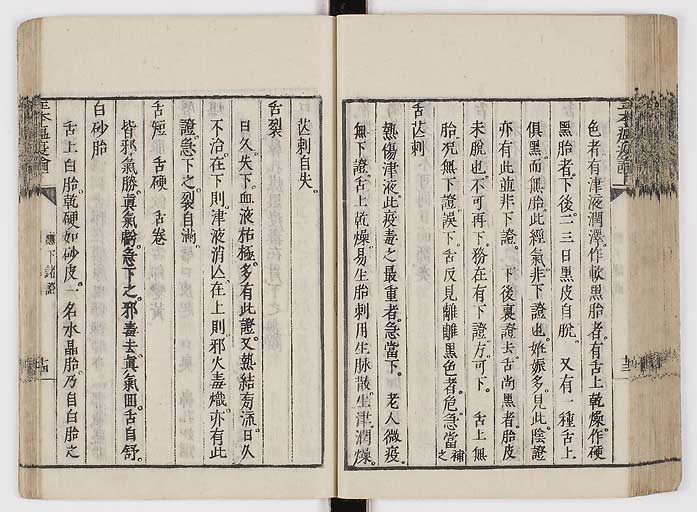 色者有津液潤澤作軟黑胎者有舌上乾燥作硬
黑胎者下後二三日黑皮自脫。又有一種舌上
俱黑而無胎此經氣非下證也妊娠多見此陰證
亦有此並非下證。下後裏證去舌尚黑者胎皮
未脫也不可再下務在有下證方可下。舌上無
胎况無下證誤下舌反見離離黑色者危急當補之
舌芒刺
熱傷津液此疫毒之最重者急當下。老人微疫
無下證舌上乾燥易生胎刺用生脉散生津潤燥。
芒刺自失。
舌裂
日久失下。血液枯極多有此證又熱結旁流日久
不治在下則津液消亾在上則邪火毒熾亦有此
證急下之裂自滿。
舌短 舌硬 舌卷
皆邪氣勝真氣虧急下之邪毒去真氣回舌自舒。
白砂胎
舌上白胎乾硬如砂皮。一名水晶胎乃自白胎之
應下諸證